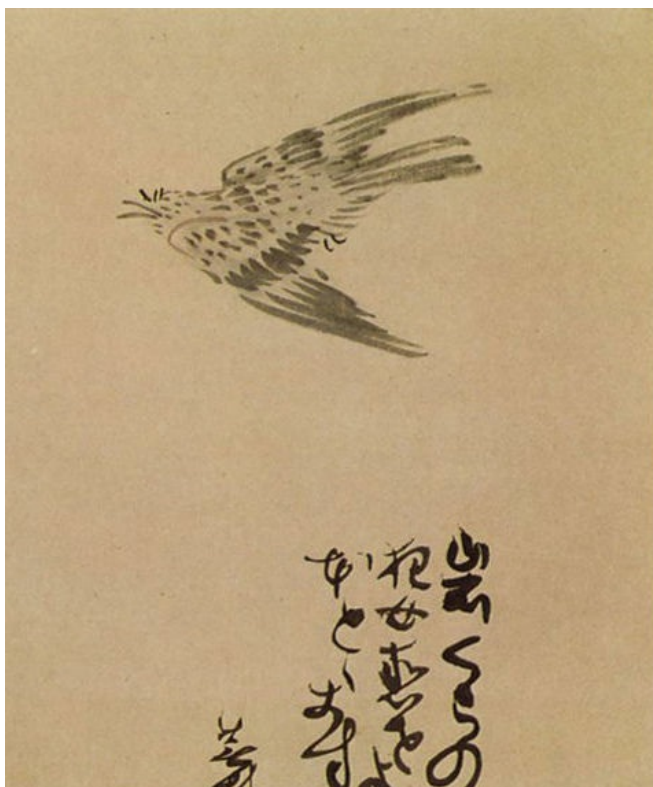 岩くらの
狂女恋せよ
ほとゝきす
蕪